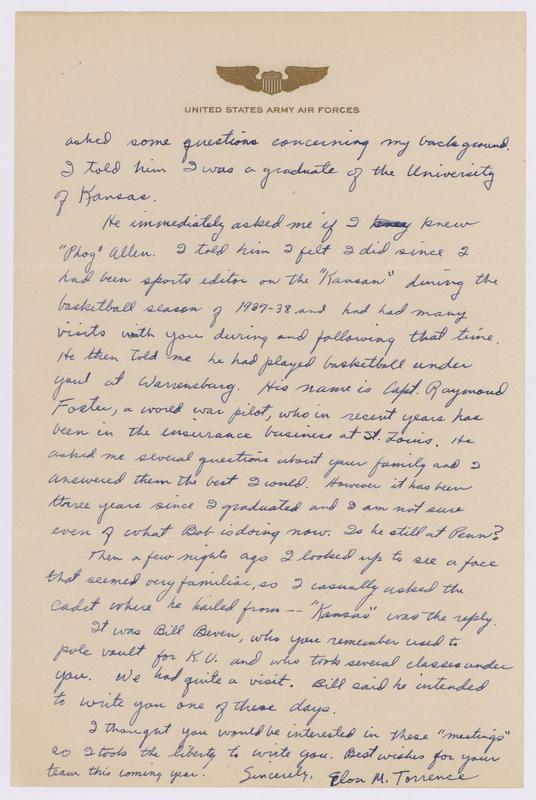 UNITED STATES ARMY AIR FORCES
asked some questions concerning my background.
I told him I was a graduate of the University
of Kansas.
He immediately asked me if I knew
"Phog" Allen. I told him I felt I did since I
had been sports editor on the "Kansan" during the
basketball season of 1937-38 and had had many
visits with you during and following that time.
He then told me he had played basketball under
you at Warrensburg. His name is Capt. Raymond
Foster, a world war pilot, who in recent years has
been in the insurance business at St. Louis. He
asked me several questions about your family and I
answered them the best I could. However it has been
three years since I graduated and I am not sure
even of what Bob is doing now. Is he still at Penn?
Then a few nights ago I looked up to see a face
that seemed very familiar, so I casually asked the
cadet where he hailed from -- "Kansas" was the reply.
It was Bill Beven, who you remember used to
pole vault for K.U. and who took several classes under
you. We had quite a visit. Bill said he intended
to write you one of these days.
I thought you would be interested in these "meetings"
so I took the liberty to write you. Best wishes for your
team this coming year. Sincerely, Elon M. Torrence